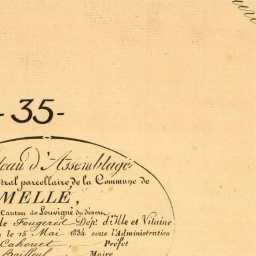 - 35 -
eau d'Assemblage
tral parcellaire de la Commune de
MELLÉ,
Canton de Louvigné du désert
de Fougères Dépt d'Ille et Vilaine
le 15 Mai 1834 sous l'Administration
Cahouet Préfet
Maire